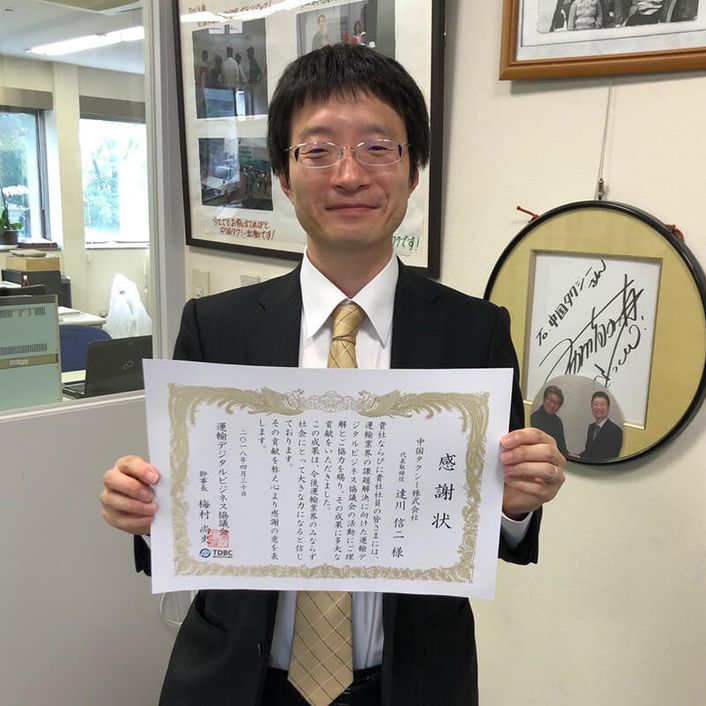 感謝状
中国タクシー株式会社
代表取締役 達川 信二 様
貴社ならびに貴社社員の皆さまには、
運輸業界の課題解決に向けた運輸デ
ジタルビジネス協議会の活動にご理
解とご協力を賜り、その成果に多大な
貢献をいただきました。
この成果は、今後運輸業界のみならず
社会にとって大きな力になると信じ
ております。
その貢献を称え心より感謝の意を表
します。
二〇一八年四月三十日
運輸デジタルビジネス協議会
幹事長 梅村 尚史
TDBC
中国タクシーさん